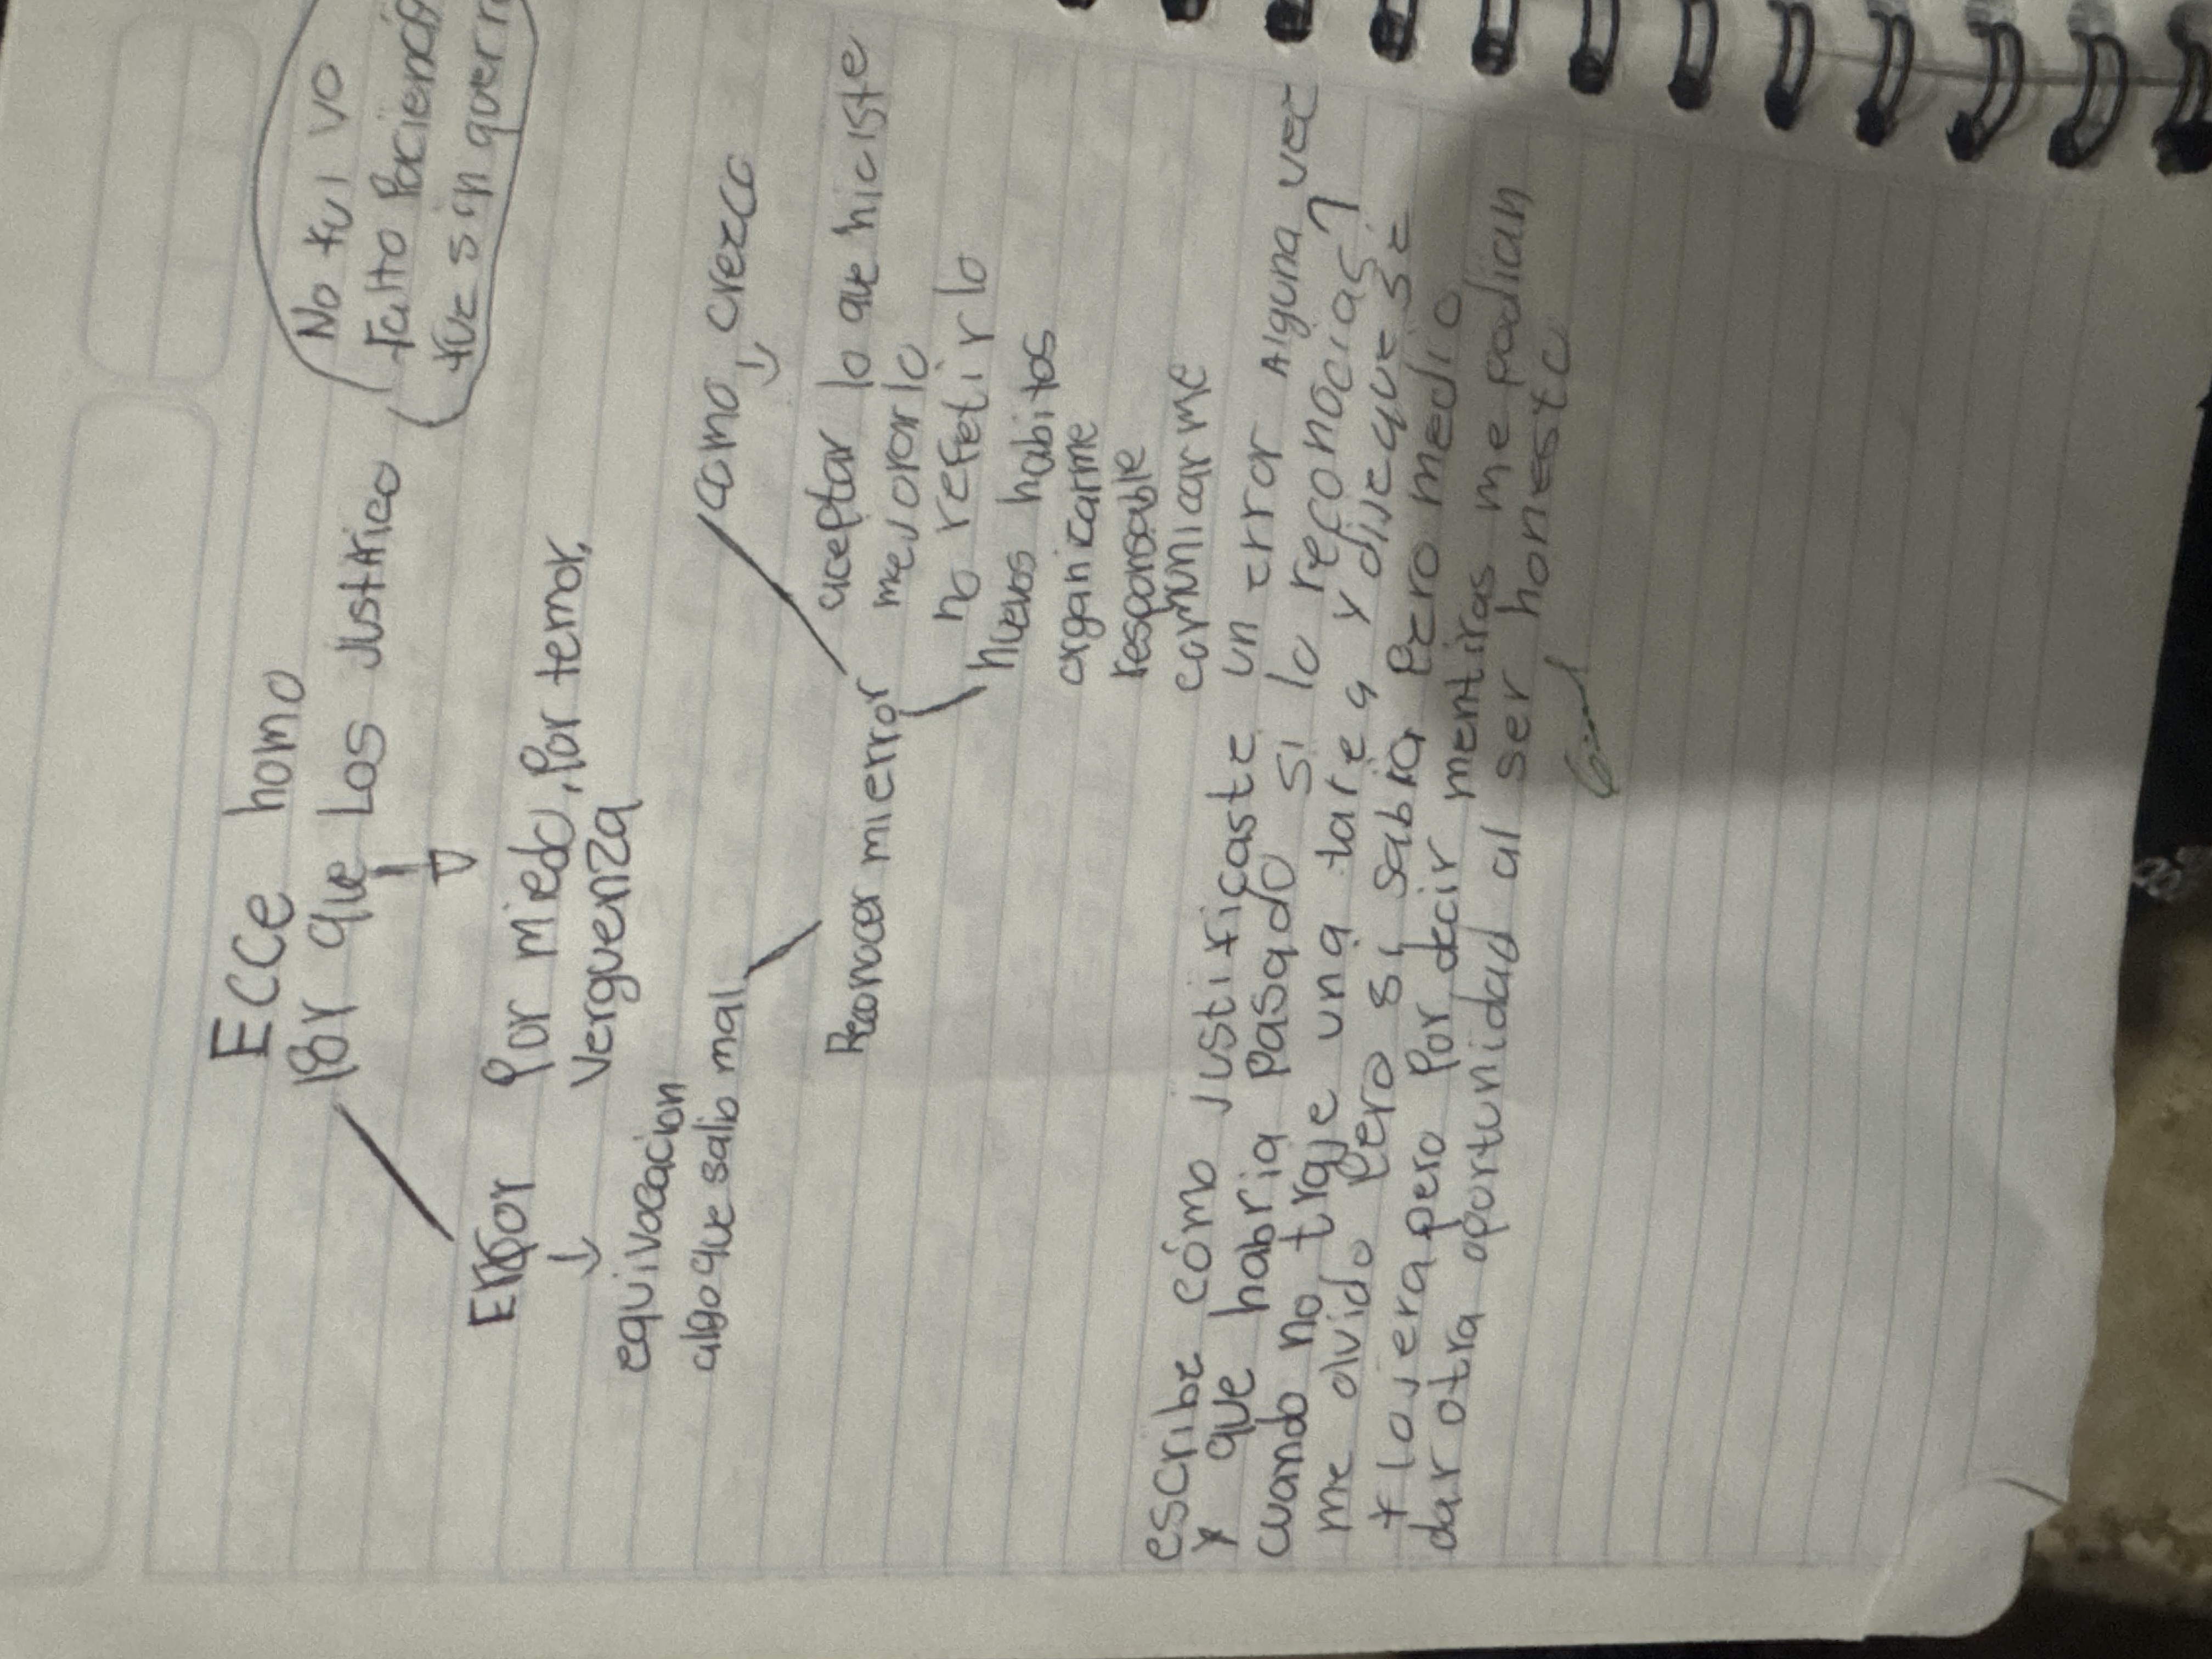 Ecce homo
Por que Los Justifico
No fui yo
falto Paciencia
fue sin querer
Error
Por miedo, Por temor,
Verguenza
equivocacion
algo que salio mal
como crezco
Reconocer mi error
aceptar lo que hiciste
mejorarlo
no refetirlo
nuevos habitos
organicarme
responsable
comunicarme
escribe cómo justificaste un error Alguna vez
y que habria pasado si lo reconocias?
cuando no traje una tarea y dije que se
me olvido Pero si sabia Pero me dio
flojera pero Por decir mentiras me podian
dar otra oportunidad al ser honesto